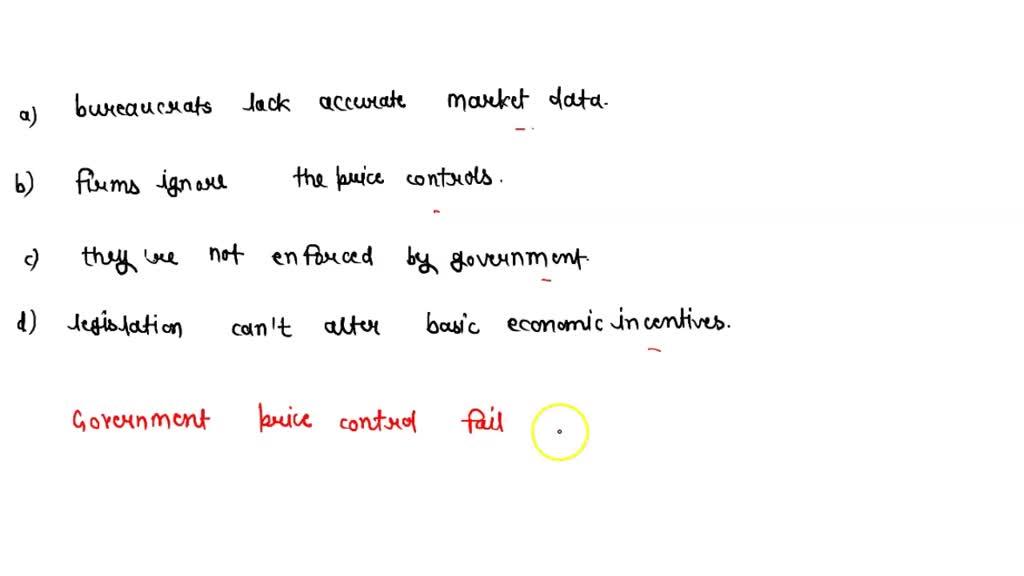 a) bureaucrats lack accurate market data.
b) firms ignore the price controls.
c) they're not enforced by government.
d) legislation can't alter basic economic incentives.
Government price control fail